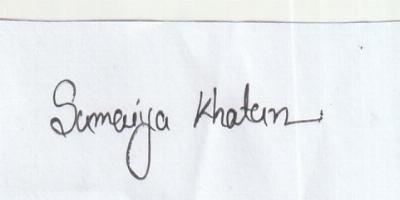 Sumaiya Khatun